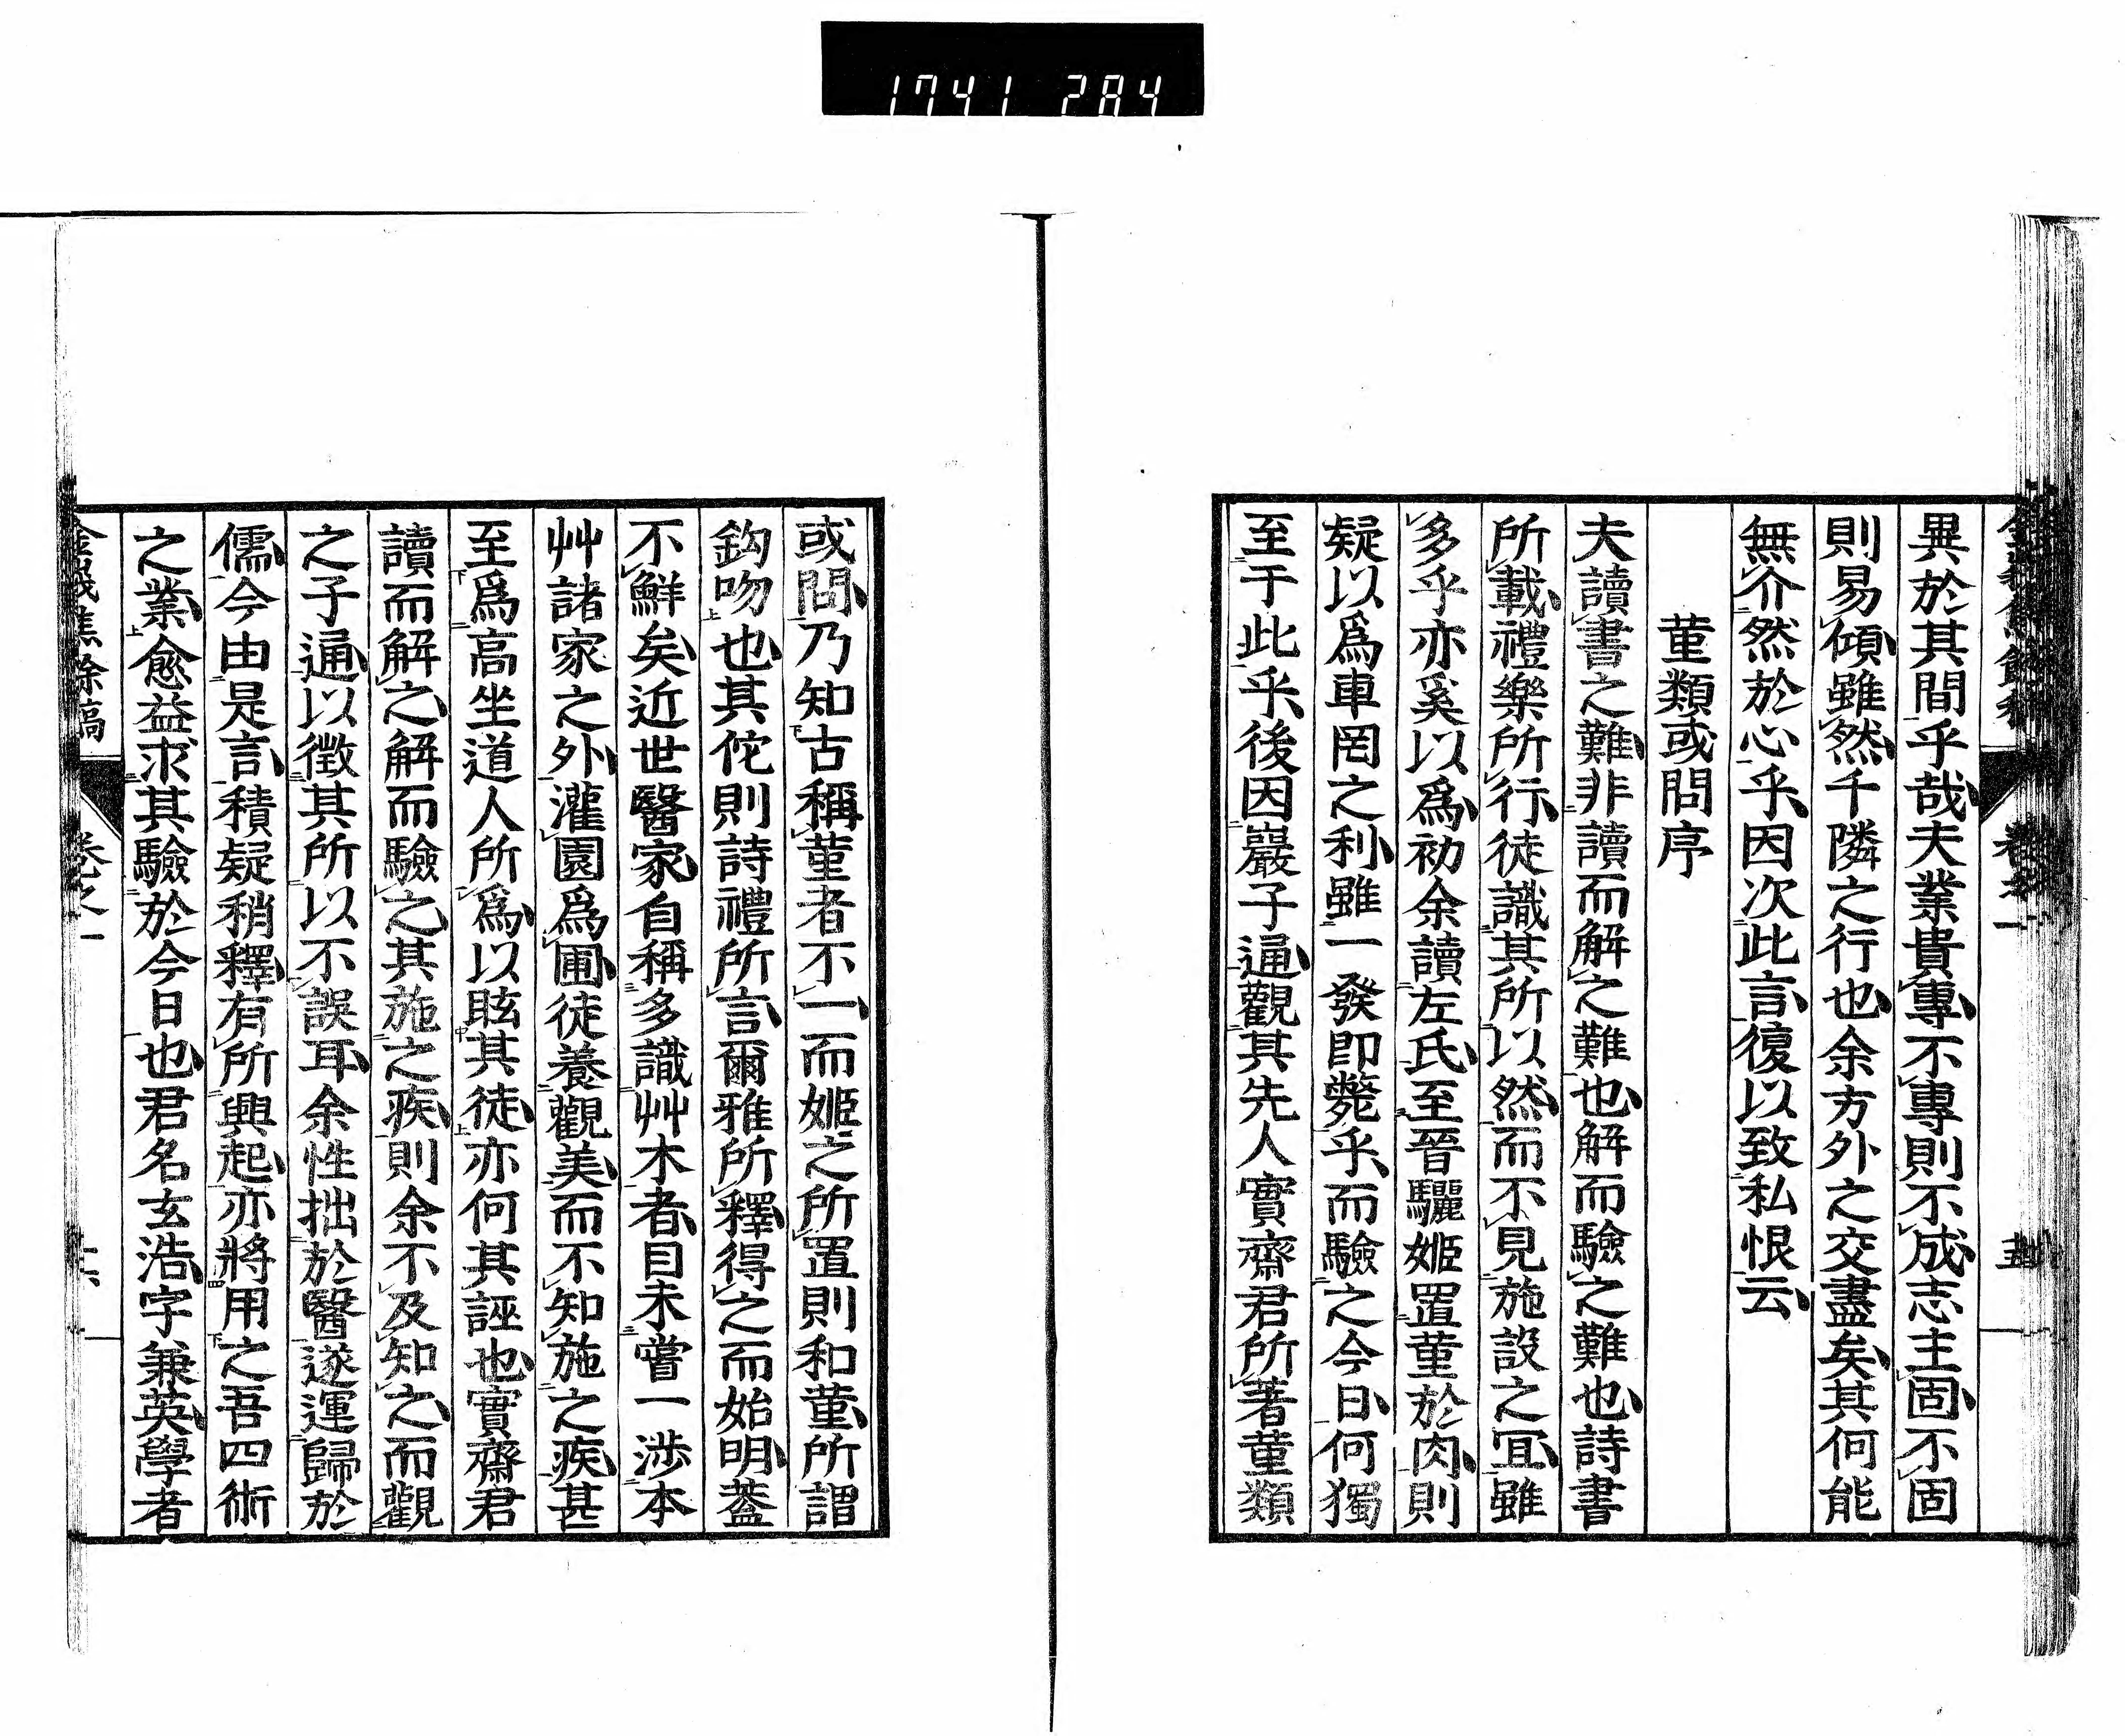 1741 284
異於其間乎哉夫業貴專不專則不成志主固不固
則易傾雖然千隣之行也余方外之交盡矣其何能
無介然於心乎因次此言復以致私恨云
菫類或問序
夫讀書之難非讀而解之難也解而驗之難也詩書
所載禮樂所行徒識其所以然而不見施設之冝雖
多乎亦奚以爲初余讀左氏至晉驪姬置菫於肉則
疑以爲車罔之利雖一發即斃乎而驗之今日何獨
至于此乎後因巖子通觀其先人實齋君所著菫類
或問乃知古稱菫者不一而姬之所置則和菫所謂
鈎吻也其佗則詩禮所言爾雅所釋得之而始明葢
不鮮矣近世醫家自稱多識艸木者目未嘗一涉本
艸諸家之外灌園爲圃徒養觀美而不知施之疾甚
至爲高坐道人所爲以眩其徒亦何其誣也實齋君
讀而解之解而驗之其施之疾則余不及知之而觀
之子通以徵其所以不誤耳余性拙於醫遂運歸於
儒今由是言積疑稍釋有所興起亦將用之吾四術
之業愈益求其驗於今日也君名玄浩字兼英學者
卷之一